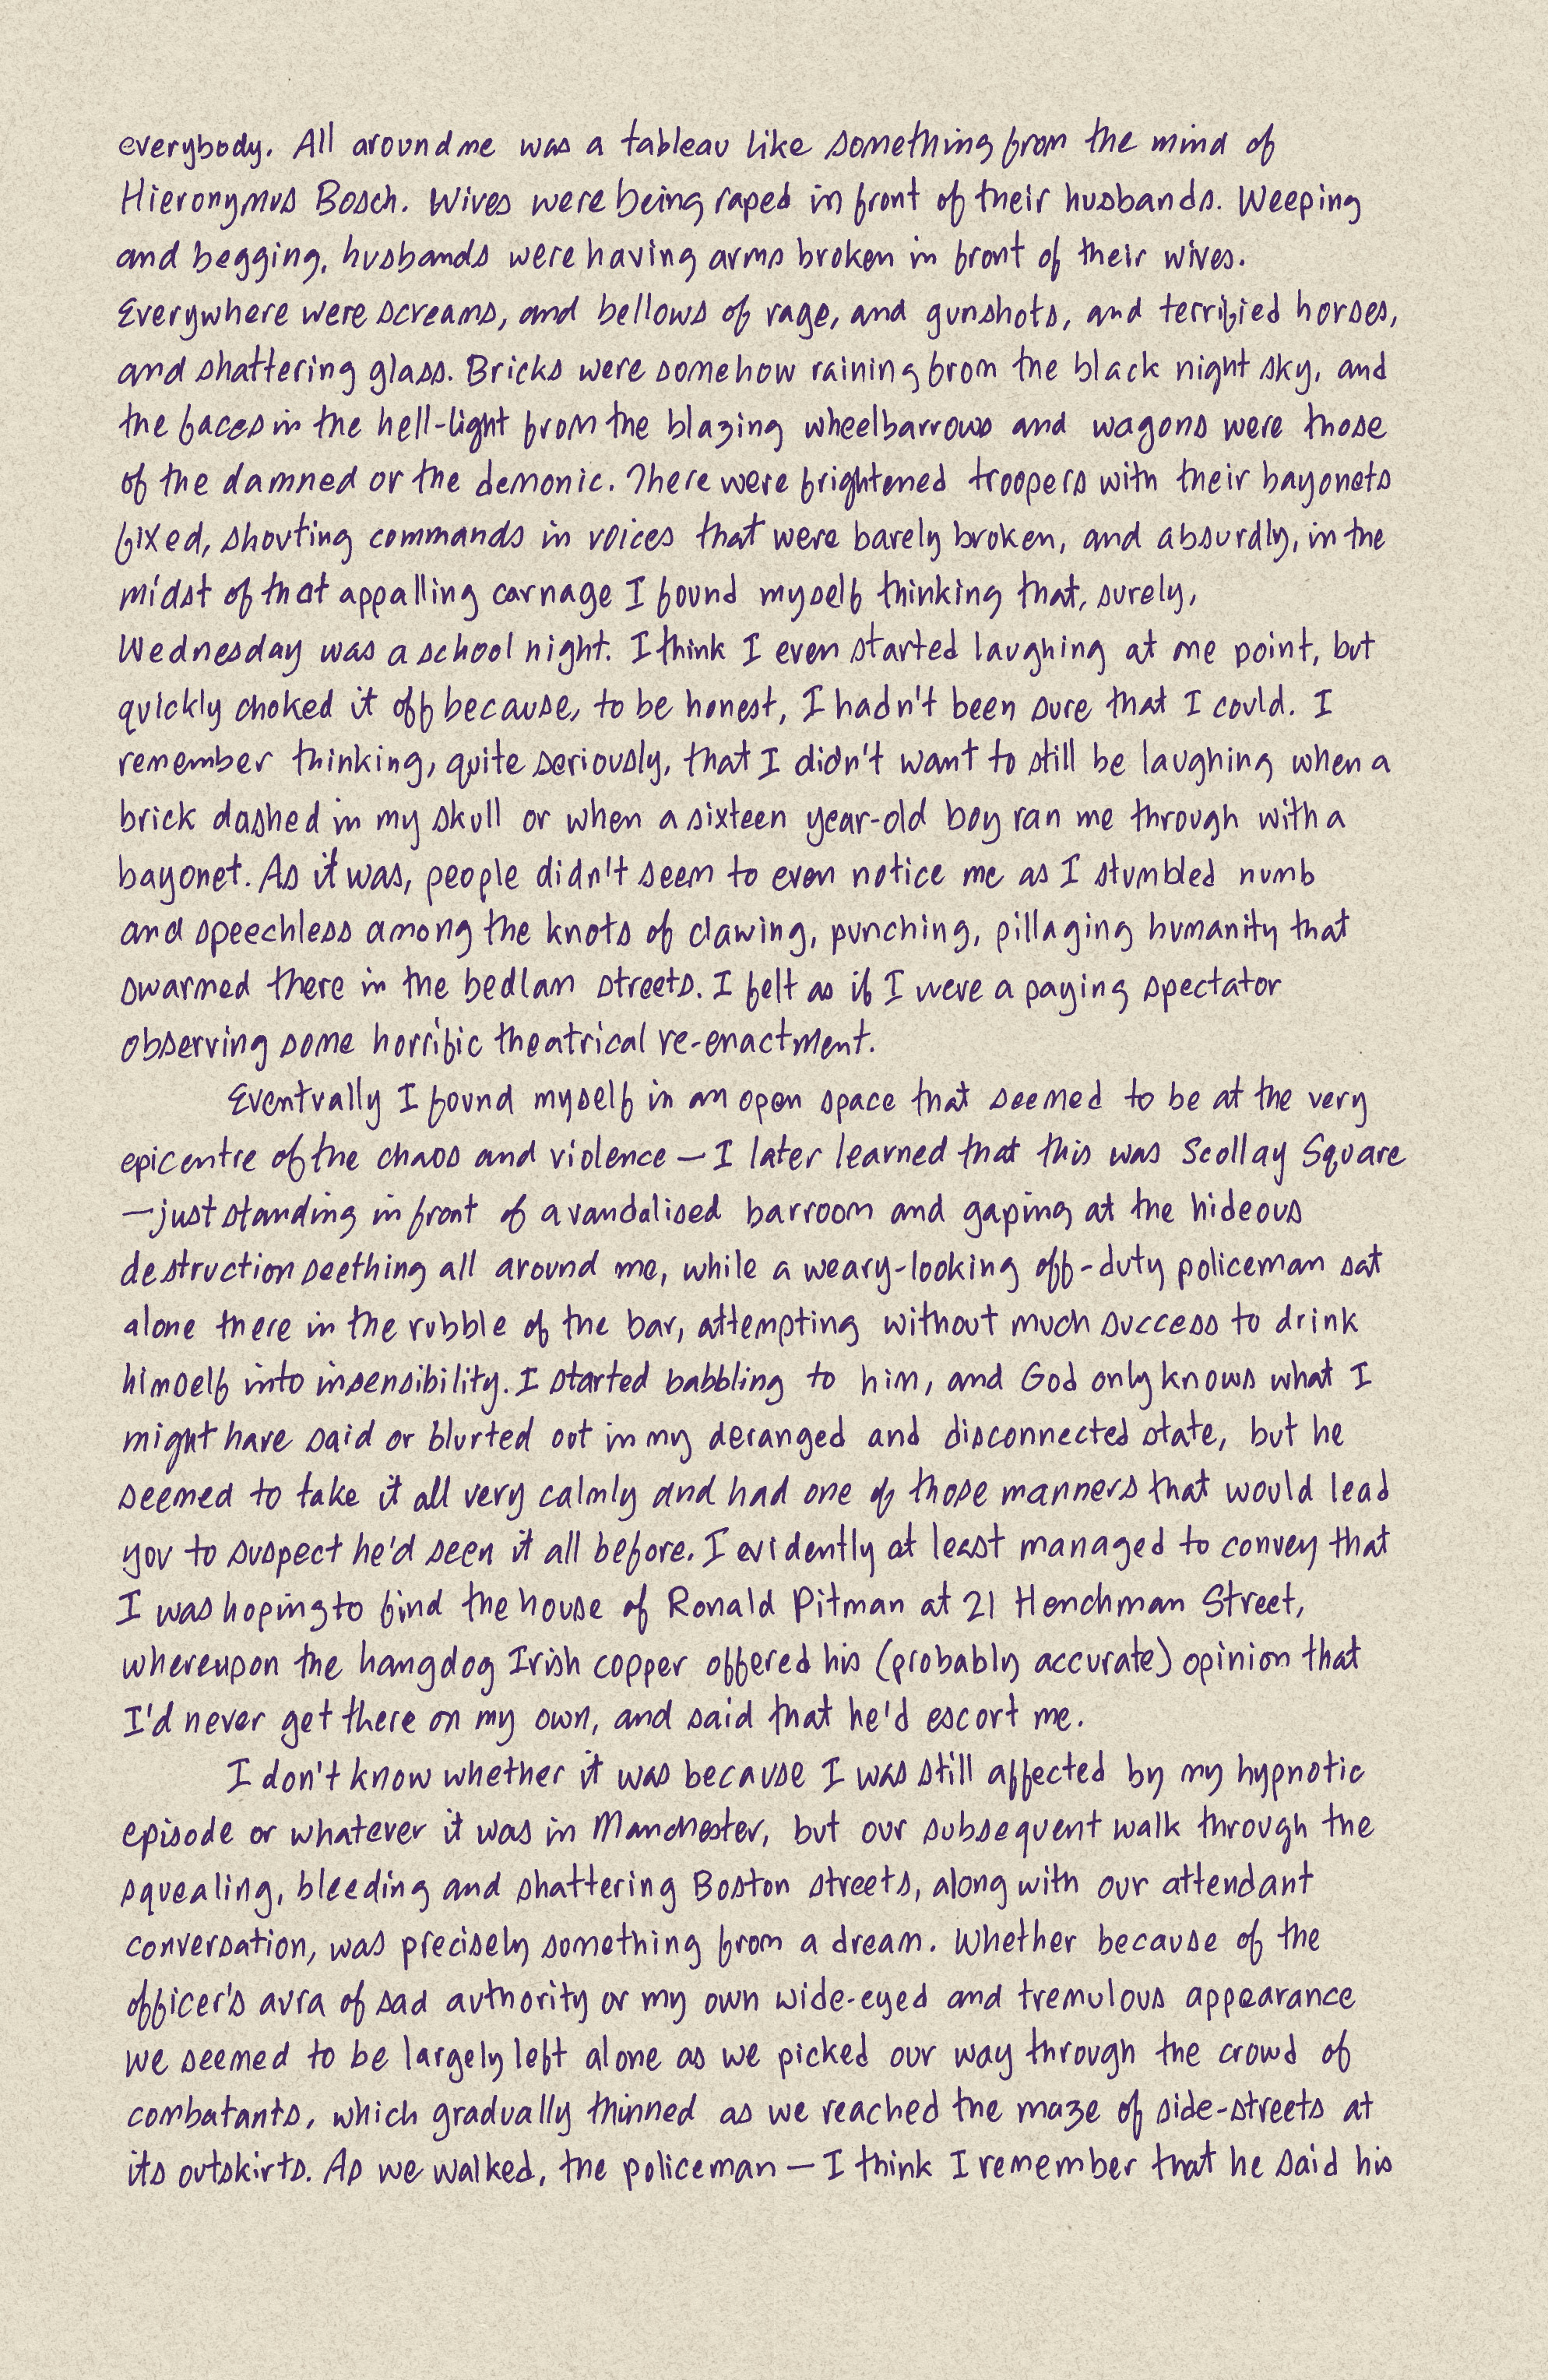 everybody. All around me was a tableau like something from the mind of
Hieronymus Bosch. Wives were being raped in front of their husbands. Weeping
and begging, husbands were having arms broken in front of their wives.
Everywhere were screams, and bellows of rage, and gunshots, and terrified horses,
and shattering glass. Bricks were somehow raining from the black night sky, and
the faces in the hell-light from the blazing wheelbarrows and wagons were those
of the damned or the demonic. There were frightened troopers with their bayonets
fixed, shouting commands in voices that were barely broken, and absurdly, in the
midst of that appalling carnage I found myself thinking that, surely,
Wednesday was a school night. I think I even started laughing at one point, but
quickly choked it off because, to be honest, I hadn't been sure that I could. I
remember thinking, quite seriously, that I didn't want to still be laughing when a
brick dashed in my skull or when a sixteen year-old boy ran me through with a
bayonet. As it was, people didn't seem to even notice me as I stumbled numb
and speechless among the knots of clawing, punching, pillaging humanity that
swarmed there in the bedlam streets. I felt as if I were a paying spectator
observing some horrific theatrical re-enactment.
Eventually I found myself in an open space that seemed to be at the very
epicentre of the chaos and violence — I later learned that this was Scollay Square
— just standing in front of a vandalised barroom and gaping at the hideous
destruction seething all around me, while a weary-looking off-duty policeman sat
alone there in the rubble of the bar, attempting without much success to drink
himself into insensibility. I started babbling to him, and God only knows what I
might have said or blurted out in my deranged and disconnected state, but he
seemed to take it all very calmly and had one of those manners that would lead
you to suspect he'd seen it all before. I evidently at least managed to convey that
I was hoping to find the house of Ronald Pitman at 21 Henchman Street,
whereupon the hangdog Irish copper offered his (probably accurate) opinion that
I'd never get there on my own, and said that he'd escort me.
I don't know whether it was because I was still affected by my hypnotic
episode or whatever it was in Manchester, but our subsequent walk through the
squealing, bleeding and shattering Boston streets, along with our attendant
conversation, was precisely something from a dream. Whether because of the
officer's aura of sad authority or my own wide-eyed and tremulous appearance
we seemed to be largely left alone as we picked our way through the crowd of
combatants, which gradually thinned as we reached the maze of side-streets at
its outskirts. As we walked, the policeman — I think I remember that he said his